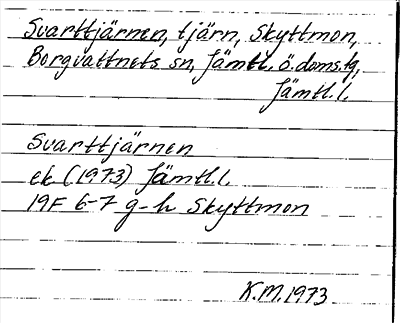 Svarttjärnen, tjärn, Skyttmon,
Borgvattnets sn, Jämtl. ö. doms.lg,
Jämtl.l.
Svarttjärnen
ek (1973) Jämtl.l.
19F 6-7 g-h Skyttmon
K.M.1973